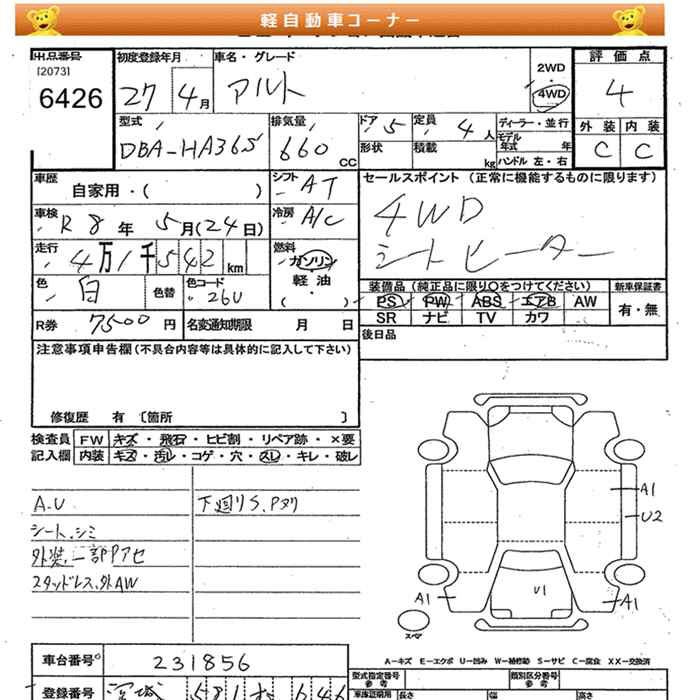 軽自動車コーナー
出品番号 初度登録年月 車名・グレード 2WD 評価点
[2073]
6426 27 4月 アルト 4WD 4
型式 排気量 ドア 5 定員 4人 ディーラー・並行 外装 内装
DBA-HA36S 660 CC 形状 積載 kg モデル年式 年 C C
ハンドル 左・右
車歴 自家用・( ) シフト AT セールスポイント (正常に機能するものに限ります)
車検 R8年 5月(24日) 冷房 A/C 4WD
走行 4万1千542km 燃料 ガソリン シートヒーター
軽油
( )
色 白 色替 色コード 26U 装備品 (純正品に限り○をつけてください) 新車保証書
PS PW ABS エアB AW 有・無
SR ナビ TV カワ
R券 7500円 名変通知期限 月 日 後日品
注意事項申告欄 (不具合内容等は具体的に記入して下さい)
修復歴 有 〔箇所 〕
検査員 FW キズ・飛石・ヒビ割・リペア跡・×要
記入欄 内装 キズ・汚レ・コゲ・穴・スレ・キレ・破レ
A.U 下廻りS.Pヌリ
シート.シミ
外装.一部Pアセ
スタッドレス.外AW
A1
U2
U1
A1 A1
スペア
A-キズ E-エクボ U-凹み W-補修跡 S-サビ C-腐食 XX-交換済
車台番号 231856
型式指定番号 参考 類別区分番号 参考
登録番号 宮城 581 車庫証明用 長さ 幅 高さ